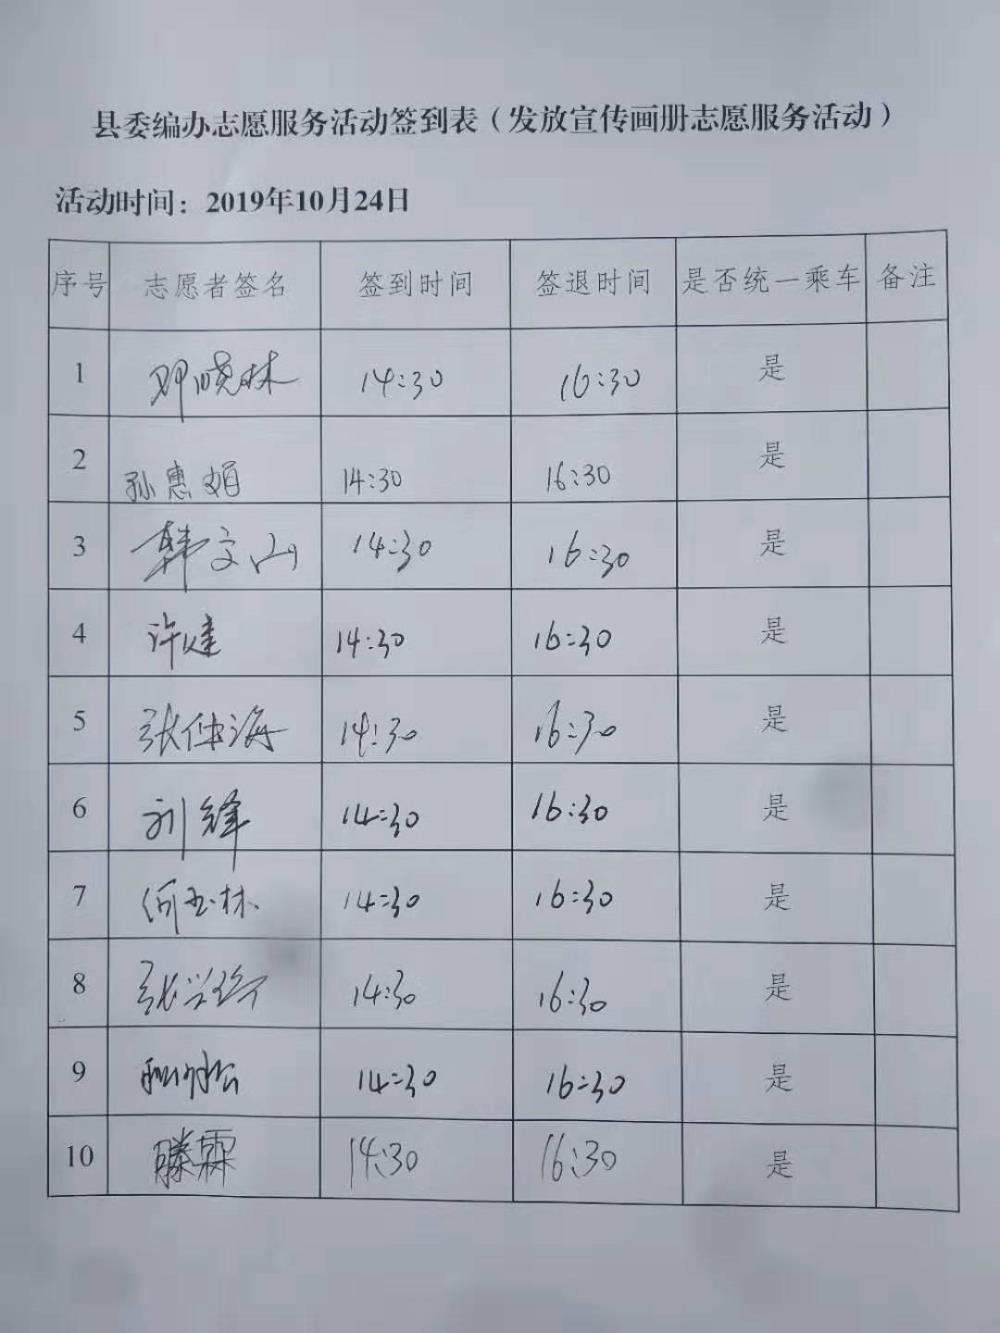 县委编办志愿服务活动签到表（发放宣传画册志愿服务活动）
活动时间：2019年10月24日
序号 志愿者签名 签到时间 签退时间 是否统一乘车 备注
1 邓晓林 14:30 16:30 是
2 孙惠娟 14:30 16:30 是
3 韩文山 14:30 16:30 是
4 许健 14:30 16:30 是
5 张仲海 14:30 16:30 是
6 刘锋 14:30 16:30 是
7 何玉林 14:30 16:30 是
8 张兴 14:30 16:30 是
9 14:30 16:30 是
10 滕霖 14:30 16:30 是